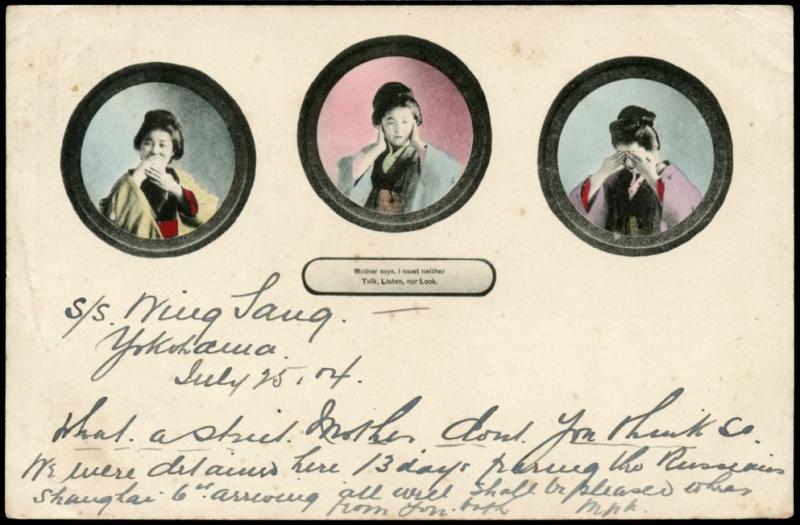 Mother says, I must neither
Talk, Listen, nor Look.
S/S. Wing Sang. —
Yokohama.
July 25, 04.
What. a strict. Mother. dont. you think so.
We were detained here 13 days fearing the Russians
Shanghai 6th arriving all well shall be pleased when
from you both